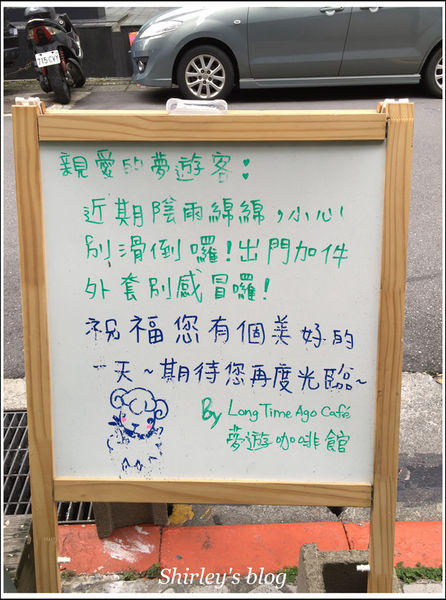 115-CVT
親愛的夢遊客：
近期陰雨綿綿，小心
別滑倒囉！出門加件
外套別感冒囉！
祝福您有個美好的
一天~期待您再度光臨~
By Long Time Ago Café
夢遊咖啡館
Shirley's blog